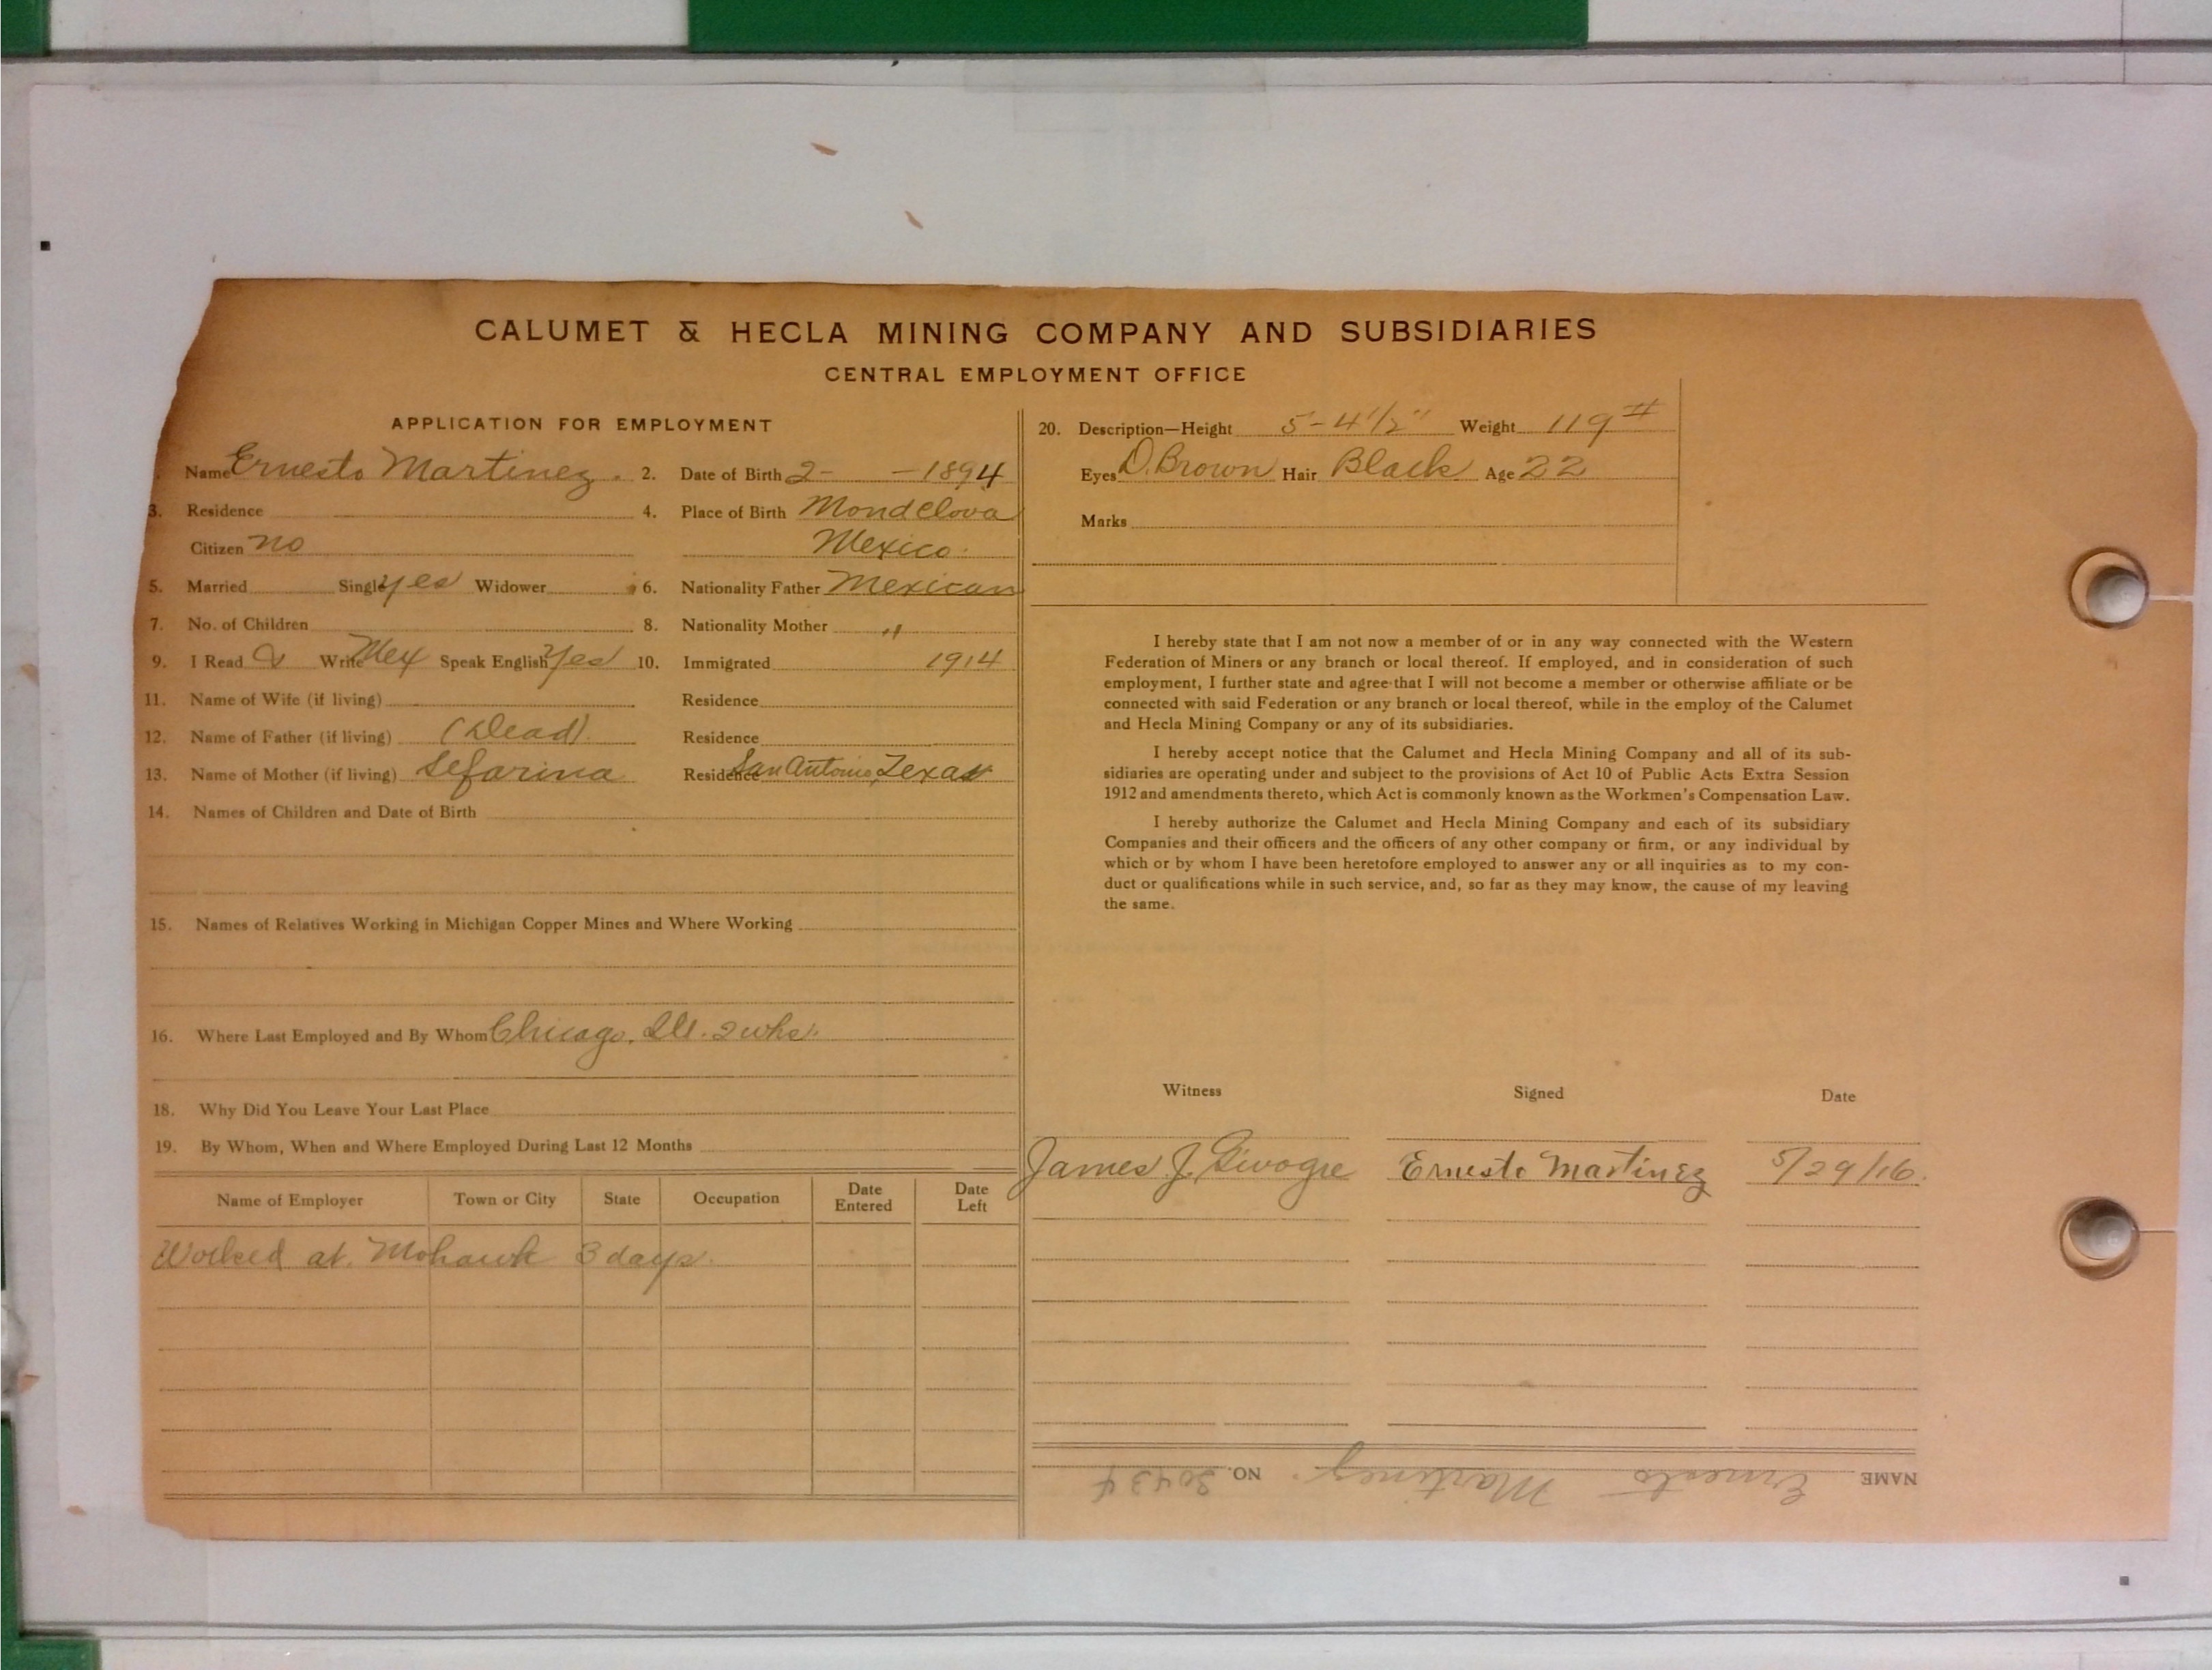 CALUMET & HECLA MINING COMPANY AND SUBSIDIARIES
CENTRAL EMPLOYMENT OFFICE
APPLICATION FOR EMPLOYMENT
Name Ernesto Martinez. 2. Date of Birth 2- -1894
3. Residence 4. Place of Birth Mondclova
Citizen no Mexico.
5. Married Single yes Widower 6. Nationality Father Mexican
7. No. of Children 8. Nationality Mother "
9. I Read & Write Mex Speak English yes 10. Immigrated 1914
11. Name of Wife (if living) Residence
12. Name of Father (if living) (Dead). Residence
13. Name of Mother (if living) Sefarina Residence San Antonio, Texas
14. Names of Children and Date of Birth
15. Names of Relatives Working in Michigan Copper Mines and Where Working
16. Where Last Employed and By Whom Chicago. Ill. 2 wks.
18. Why Did You Leave Your Last Place
19. By Whom, When and Where Employed During Last 12 Months
Name of Employer Town or City State Occupation Date Entered Date Left
Worked at. Mohawk 3 days.
20. Description—Height 5-4 1/2" Weight 119#
Eyes D. Brown Hair Black Age 22
Marks
I hereby state that I am not now a member of or in any way connected with the Western
Federation of Miners or any branch or local thereof. If employed, and in consideration of such
employment, I further state and agree that I will not become a member or otherwise affiliate or be
connected with said Federation or any branch or local thereof, while in the employ of the Calumet
and Hecla Mining Company or any of its subsidiaries.
I hereby accept notice that the Calumet and Hecla Mining Company and all of its sub-
sidiaries are operating under and subject to the provisions of Act 10 of Public Acts Extra Session
1912 and amendments thereto, which Act is commonly known as the Workmen's Compensation Law.
I hereby authorize the Calumet and Hecla Mining Company and each of its subsidiary
Companies and their officers and the officers of any other company or firm, or any individual by
which or by whom I have been heretofore employed to answer any or all inquiries as to my con-
duct or qualifications while in such service, and, so far as they may know, the cause of my leaving
the same.
Witness Signed Date
James J. Ernesto Martinez 5/29/16.
NAME Ernesto Martinez. NO. 20434